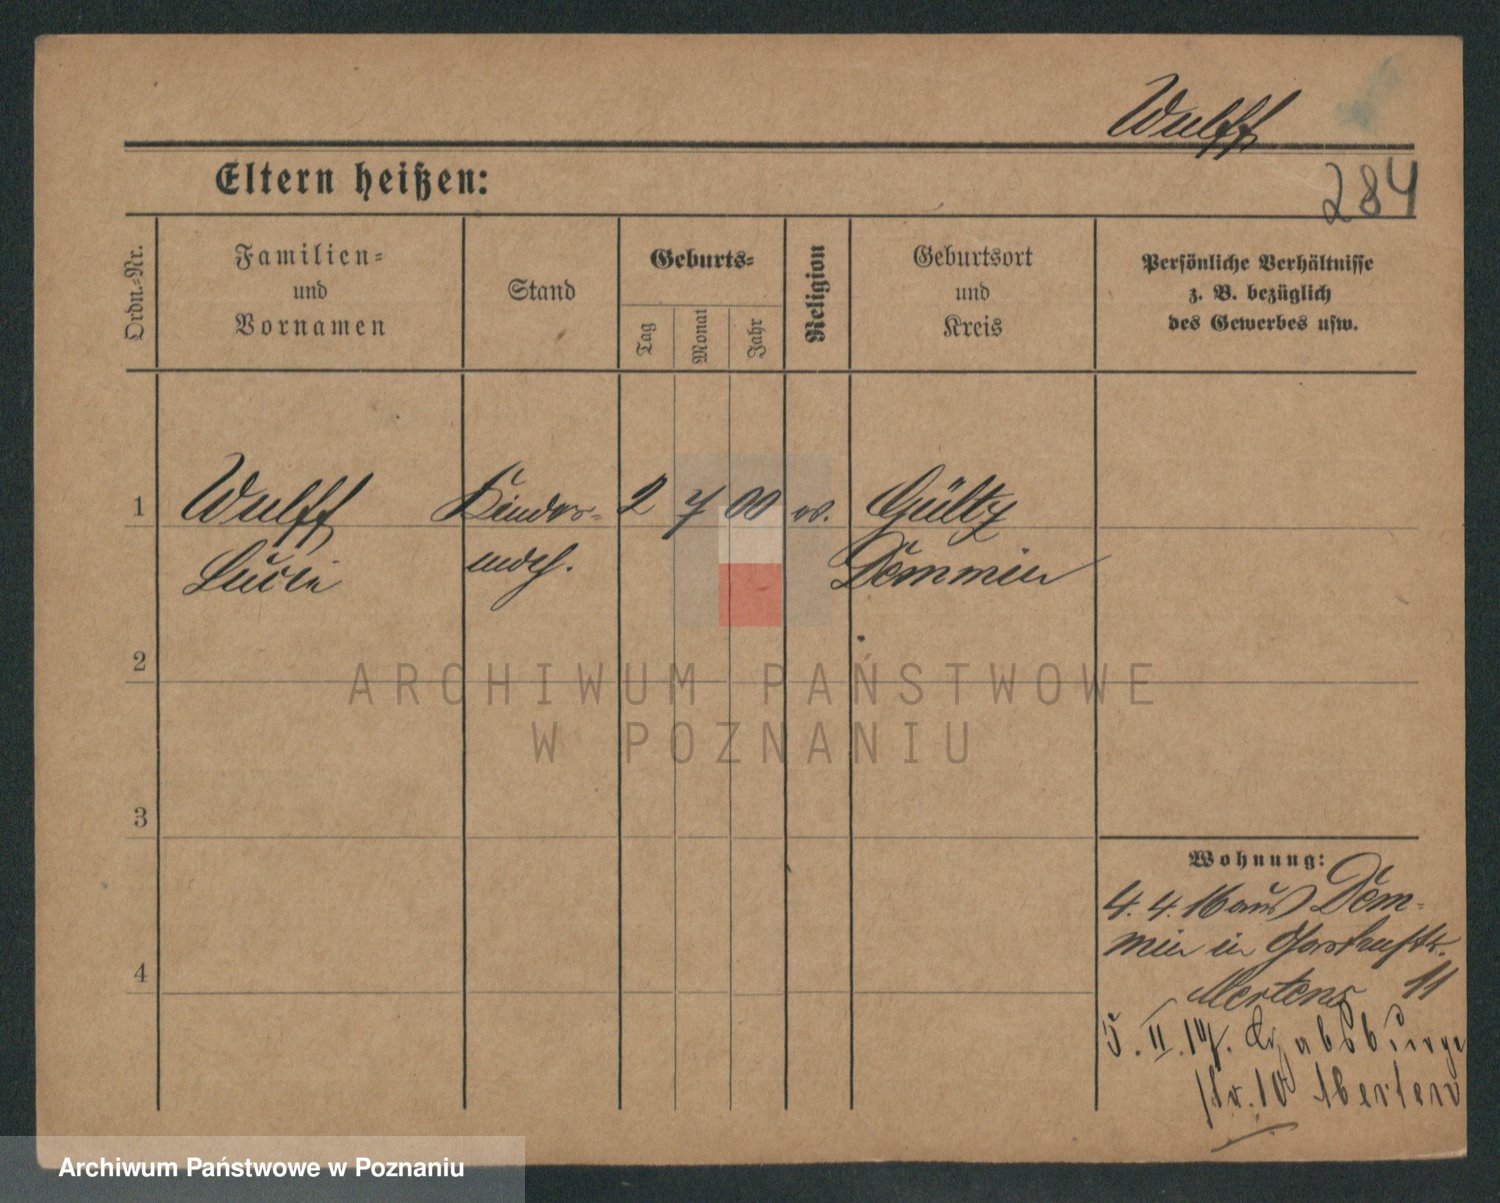 Wulff
284
Eltern heißen:
Ordn.-Nr.
Familien-
und
Vornamen
Stand
Geburts-
Tag
Monat
Jahr
Religion
Geburtsort
und
Kreis
Persönliche Verhältnisse
z. B. bezüglich
des Gewerbes usw.
1 Wulff Kinder- 2 7 00 ev. Gültz
Lucie mdch. Demmin
2
ARCHIWUM PAŃSTWOWE
W POZNANIU
3
Wohnung:
4. 4. 16 aus Dem-
min in
4
Mertens 11
5. II. 17. Habsburge
str. 10 Mertens
Archiwum Państwowe w Poznaniu